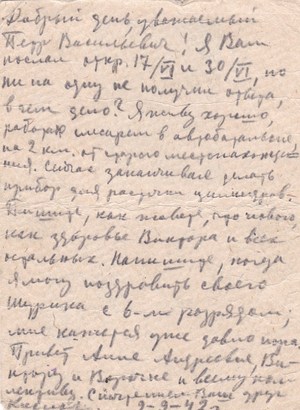 Добрый день, уважаемый
Петр Васильевич! Я Вам
послал откр. 17/VI и 30/VI, но
ни на одну не получил ответа,
в чем дело? Я живу хорошо,
работаю слесарем в автобатальоне,
на 2 км. от старого местонахожде-
ния. Сейчас заканчиваю делать
прибор для расточки цилиндров.
Пишите, как живете, что нового,
как здоровье Виктора и всех
остальных. Напишите, когда
я могу поздравить своего
Шурика с 6-м разрядом;
мне кажется уже давно пора.
Привет Анне Андреевне, Ви-
ктору и Верочке и всему кол-
лективу. С почтением Ваш друг